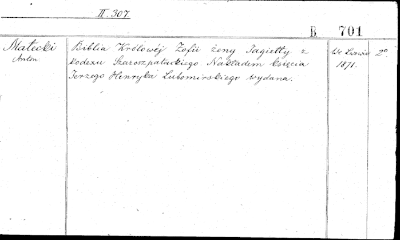 II. 307
B 701
Małecki
Antoni
Biblia Królowéj Zofii żony Jagiełły z
kodexu Szaroszpatackiego Nakładem księcia
Jerzego Henryka Lubomirskiego wydana.
We Lwowie
1871.
2°